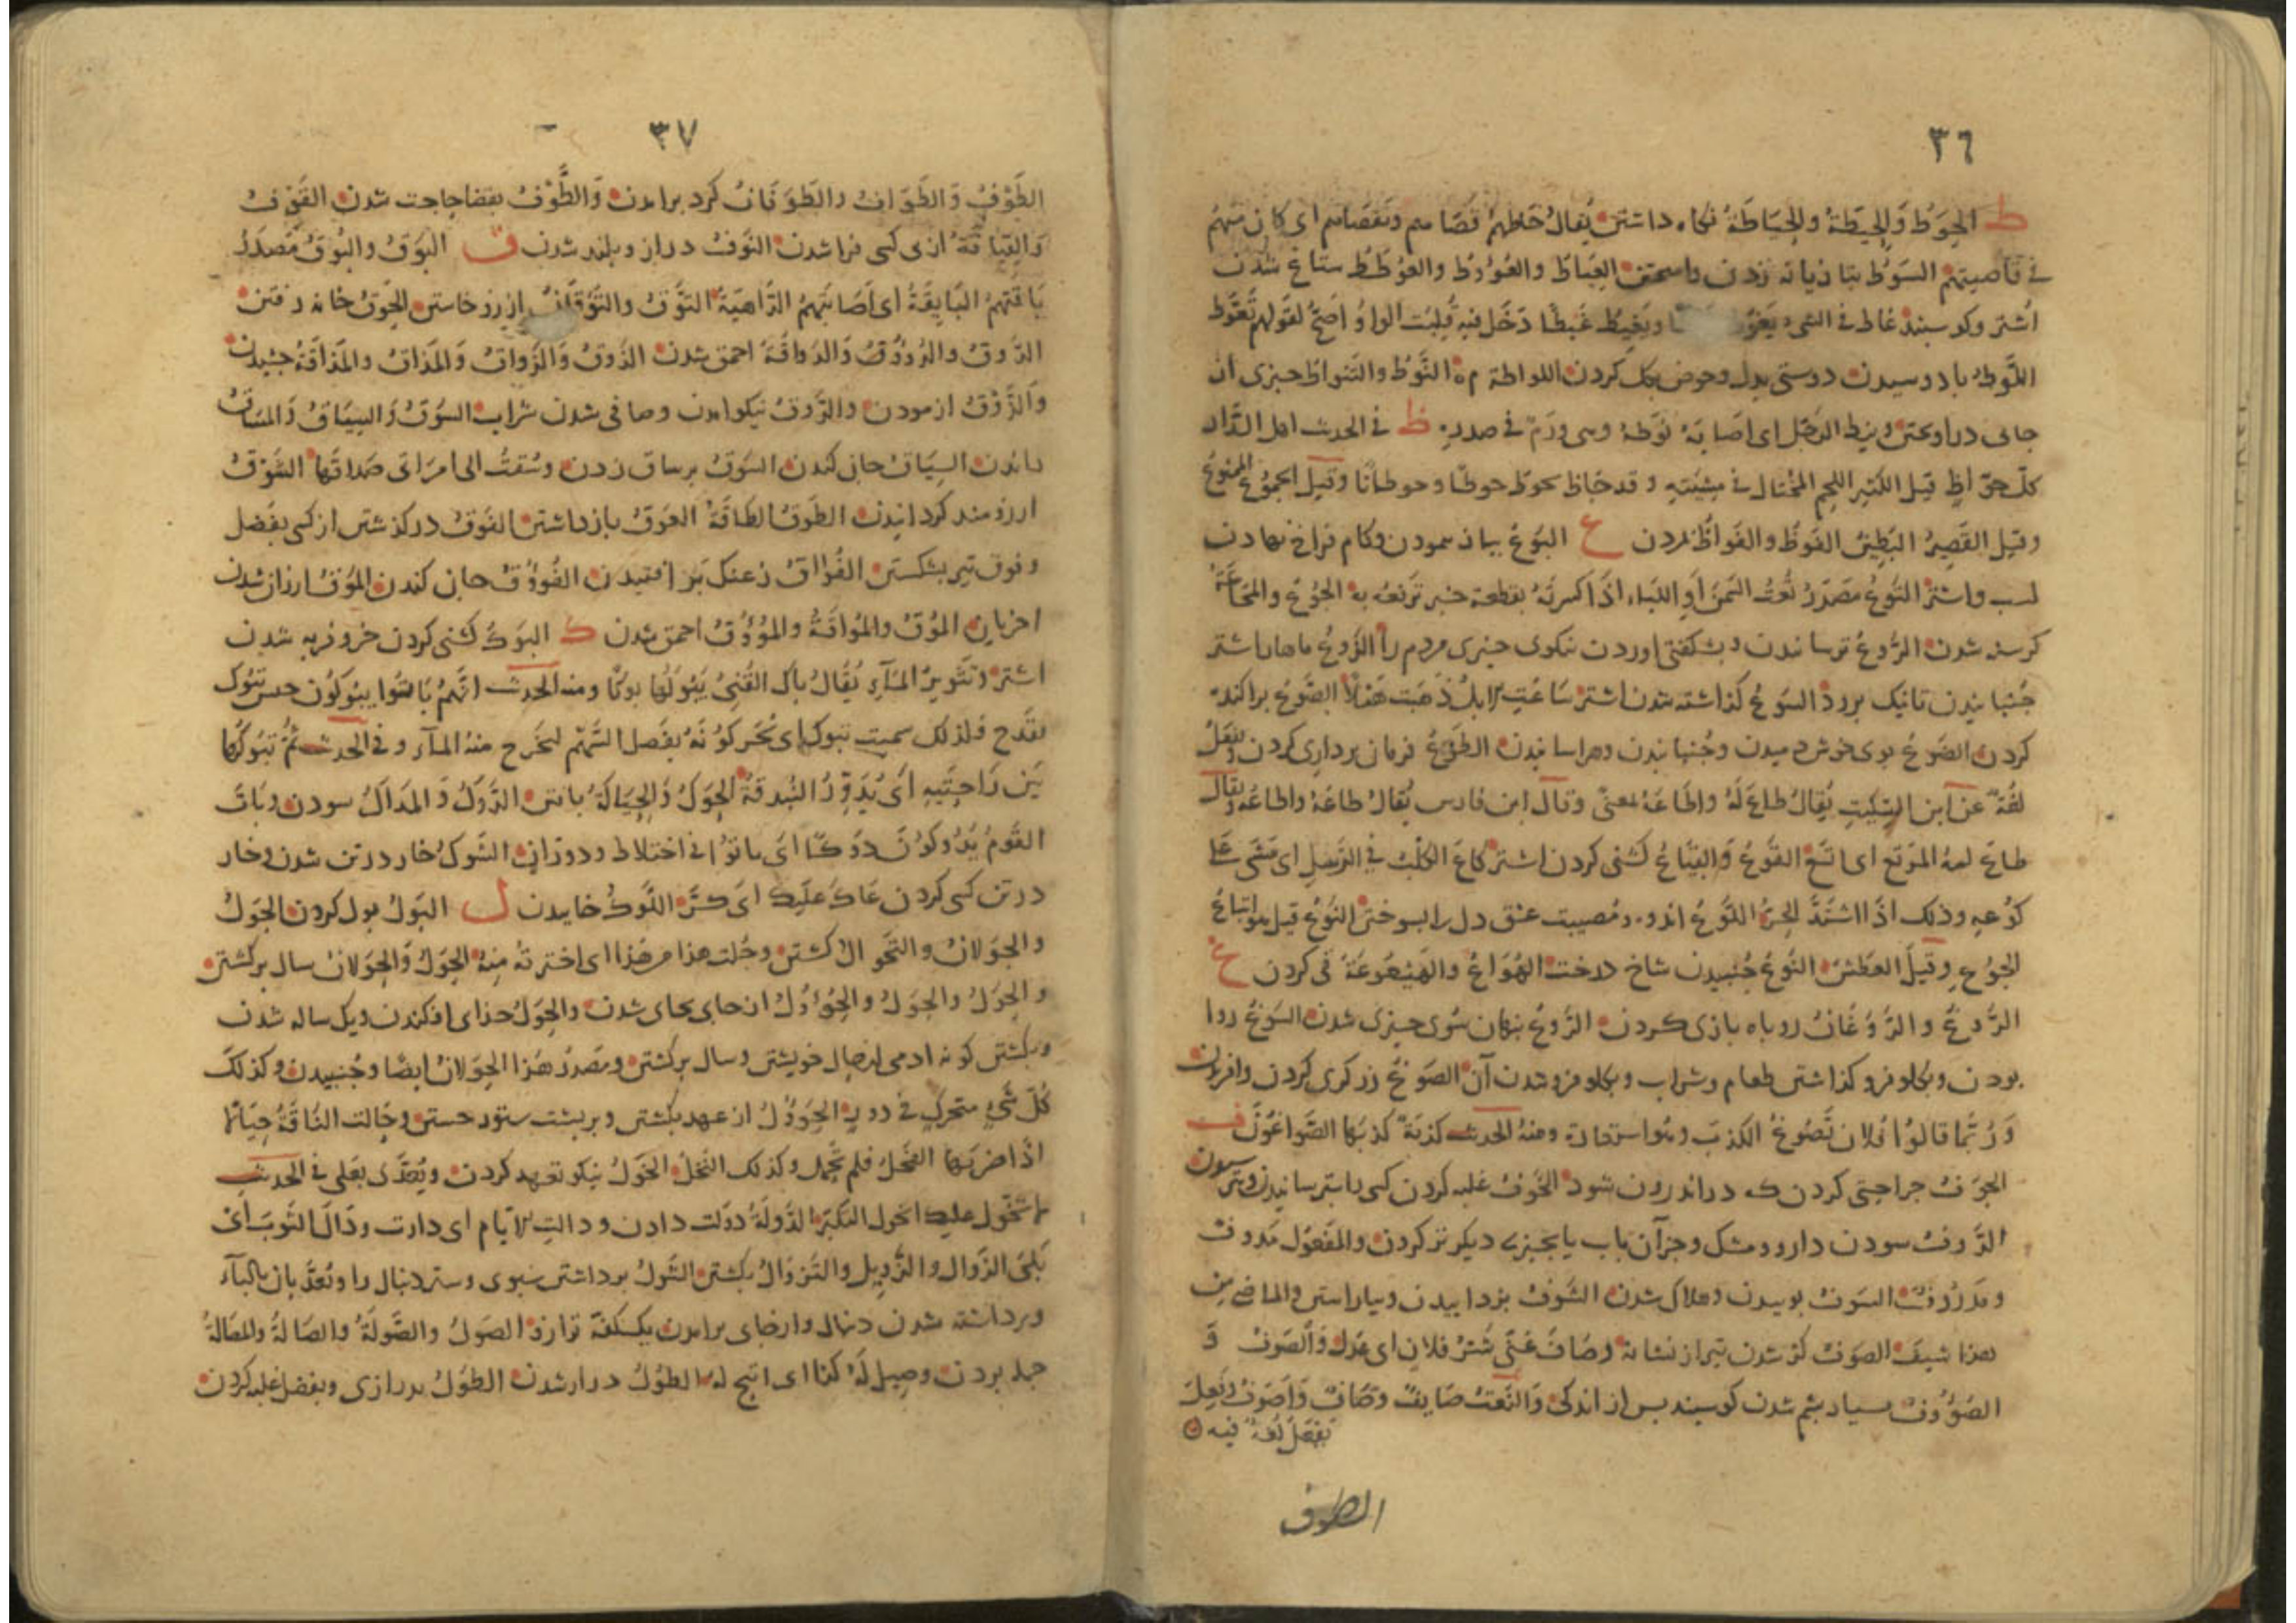 ٣٦
ط الحَوْطُ وَالحِيطَةُ والحِيَاطَةُ نكاه داشتن يُقالُ حَاطَهُمْ قَصَاهم وبقَصَاهم اى كان منهمْ
فى قاصيتهمْ السَوْطُ بتازيانه زدن العِيَاطُ والعُوُوطُ والعُوطَطُ ستاغ شدن
اشتر وكوسبند غاط فى الشىء يَغُوْط ويَغِيطُ غَيطًا دَخَل فيه قُلبت الواوُ اَصَحّ لقولهم تَغَوَّط
اللَّوطُ بادوسيدن دوستى بدل وحوض بكل كردن اللواطة م النَّوْطُ والتَنواطُ جيزى از
جاى دراويختن ونيط الرَجُل اى اصَابَهُ نَوْطَةٌ وهى ورَمٌ فى صدره ظ فى الحديث اهل النَّار
كلّ جوّاظٍ قيل الكثير اللحم المُخْتال فى مِشيَتِهِ وقد جَاظ يجوظ جوظًا وجوظانًا وقيل الجموُعُ المنوعُ
وقيل القَصِيرُ البَطِينُ الفَوظُ والفَوَاظُ مردن ع البَوْعُ بباز بيمودن وكام فراخ نهادن
اسب واشتر التَوْعُ مَصْدَرُ تُعْتُ السَمْنَ أوِ اللِبَاء اذَا كسرتَهُ بقطعة خبز تَرفعُه به الجُوْعُ والمَجَاعَةُ
كرسنه شدن الرَّوعُ ترسانيدن وبشكفتى اوردن نيكوى جيزى مردم را الزَّوعُ ماهار اشتر
جُنبانيدن تانيك برود السَوْعُ كذاشته شدن اشتر سَاعَتِ الابلُ ذَهَبَت هَمْلًا الصَّوْعُ براكنده
كردن الضَوعُ بوى خوش دميدن وجُنبانيدن وهراسانيدن الطَوْعُ فرمان بردارى كردن ويَفعَلُ
لغَةٌ عن ابن السِكّيتِ يُقالُ طاعَ لَهُ واطَاعَهُ بمعنًى وقال ابن فارس يُقالُ طَاعَهُ واطاعَهُ ويقال
طاعَ لهُ المَرتَع اى اتّسَعَ القَوْعُ وَالقِيَاعُ كشنى كردن اشتر كاعَ الكَلْبُ فى الرَمْلِ اى مَشَى على
كوُعِهِ وذلك اذَا اشتَدَّ الحرّ اللَّوْعُ اندوه ومُصيبت عشق دل را بسوختن النُوعُ قيل هو اتباعُ
الجوُعِ وقيلَ العَطَشُ النَّوْعُ جُنبيدن شاخ درخت الهُوَاعُ والهَيْعُوعَةُ قَى كردن غ
الرَّوْغُ والرَّوَغَانُ روباه بازى كردن الرَّوْغُ بنهان سُوى جيزى شدن السَوْغُ روا
بودن وبكلو فرو كذاشتن طعام وشراب وبكلو فرو شدن آن الصَوْغُ زركرى كردن وافريدن
وَرُبَّمَا قالوُا فلان يَصُوغُ الكذبَ وهُوَ استعارة ومنهُ الحديث كذبَةٌ كذبَهَا الصَّوَّاغُونَ ف
الجوْفُ جراحتى كردن كه در اندرون شود الخَوْفُ غلبه كردن كسى را بترسانيدن وترسيدن
الدَّوْفُ سودن دارو ومشك وجز آن باب يا بجيزى ديكر تر كردن والمَفعُول مَدُوفٌ
ومَدْوُوفٌ السَوْفُ بوييدن وهلاك شدن الشَوْفُ بزداييدن وبياراستن والماضى من
هذا شيفَ الصَوفُ كژ شدن تير از نشانه وصَافَ عَنّى شَرُّ فلان اى عَدَل وَالصَوْفُ وَ
الصُوُوفُ بسيار بشم شدن كوسبند بس از اندكى وَالنَعْتُ صَايفٌ وصَافٌ وَاَصْوَفُ وفَعِلَ
يَفعَلُ لغةٌ فيه
الطوف
٣٧
الطَوْفُ وَالطَوَافُ والطَوَفَانُ كرد برامدن وَالطَّوْفُ بقضا حاجت شدن القَوْفُ
وَالقِيَافَةُ از بى كسى فرا شدن النَوْفُ دراز وبلند شدن ق البَوْقُ والبُوُوقُ مَصْدَرُ
بَاقتهمُ البَايِقَةُ اى اَصَابَتْهُمُ الدَّاهيَةُ التَوْقُ والتَوَقَانُ ارزو خاستن الحَوْقُ خانه رفتن
الدَّوقُ والدُؤوُقُ وَالدَوَاقَةُ احمق شدن الذَوْقُ وَالذَّوَاقُ وَالمَذَاقُ والمَذَاقَةُ جشيدن
وَالذَّوْقُ ازمودن والرَّوقُ نيكو امدن وصافى شدن شراب السَوْقُ وَالسِيَاقُ وَالمَسَاقُ
راندن السِيَاقُ جان كندن السَوْقُ بر ساق زدن وسُقتُ الى امرَاتى صَداقَهَا الشَوْقُ
ارزومند كردانيدن الطَوقُ الطَاقَةُ العَوقُ بازداشتن الفَوْقُ در كذشتن از كسى بفَضل
وفوق تير بشكستن الفُوَاقُ زغنك بَر افتيدن الفُوُوْقُ جان كندن المُوْقُ ارزان شدن
اخريان المُوْقُ والمُوَاقَةُ والمُوُوقُ احمق شدن ك البَوكُ كشنى كردن خر وفربه شدن
اشتر وتثويرُ المَآءِ يُقَالُ بَاكَ القُنِىَّ يَبُوكُهَا بوكًا ومنه الحديث انّهمْ بَاتُوا يبُوكوُن حسى تبُوك
بقدح فلذلك سميت تبوك اى يُحَرّكوُنَهُ بفَصل السَّهم ليخرج منهُ المآء وفى الحديث ثُمَّ تبُوكُهَا
بَين رَاحتَيهِ اَى يُدَوّرُ البُندقَةُ الحَوكُ وَالحِيَاكَةُ بافتن الدَّوكُ وَالمَدَاكُ سودن وبَاتَ
القَومُ يَدُوكوُنَ دَوكًا اى باتوُا فى اختلاط ودوَران الشَوكُ خار در تن شدن وخار
در تن كسى كردن عَاكَ عَلَيهِ اى كرَّ اللَوكُ خاييدن ل البَوْلُ بول كردن الجَوْلُ
والجَوَلَانُ والتَجْوَالُ كشتن وجُلت هذا من هَذا اى اخترتهُ مِنهُ الحَوْلُ وَالحَوَلَانُ سال بركشتن
والحِوَلُ والحَوَلُ والحُؤُولُ از جاى بجاى شدن والحَوَلُ جذاى افكندن ويك ساله شدن
وبكشتن كونه ادمى از حال خويشتن وسال بركشتن ومصدرُ هَذا الحَوَلَانُ ايضًا وجُنبيدن وكذلكَ
كُلّ شَىْءٍ متحركٍ فى دوره الحُؤُولُ از عهد بكشتن وبر بشت ستور جستن وحَالت النَّاقَةُ حِيَالًا
اذَا ضرَبهَا الفَحلُ فلم تحمل وكذلك النَخلُ الخَوْلُ نيكو تعهد كردن ويُعَدَّى بعَلى فى الحديث
التكبّر الدَّولَةُ دَوْلت دادن ودالت الاَيّام اى دارت ودَالَ الثَوبُ اَىْ
بَلِىَ الزَّوَال والزَّوِيل والتَزوَالُ بكشتن الشَّوْلُ برداشتن سبوى وستر دنبال را وتعدّيان بالبآء
وبرداشته شدن دنبال وارجاى برامدن يك كفّه ترازو الصَوْلُ والصَّوْلَةُ والصَالةُ والمَصَالَةُ
حمله بردن وصِيل لَهُ كذا اى اتيح له الطُوْلُ دراز شدن الطَوْلُ بدرازى وبفضل غلبه كردن